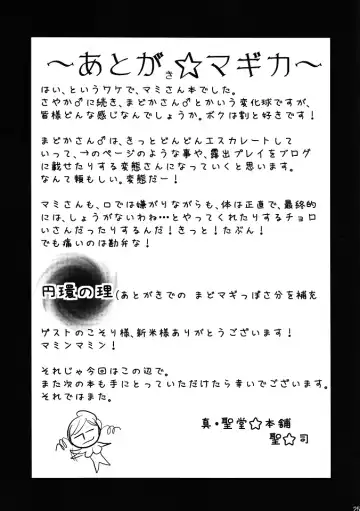 ～あとがき☆マギカ～
はい、というワケで、マミさん本でした。
さやか♂に続き、まどかさん♂とかいう変化球ですが、
皆様どんな感じなんでしょうか。ボクは割と好きです！
まどかさん♂は、きっとどんどんエスカレートして
いって、→のページのような事や、露出プレイをブログ
に載せたりする変態さんになっていくと思います。
なんて頼もしい。変態だー！
マミさんも、口では嫌がりながらも、体は正直で、最終的
には、しょうがないわね…とやってくれたりするチョロ
いさんだったりするんだ！きっと！たぶん！
でも痛いのは勘弁な！
円環の理(あとがきでの まどマギっぽさ分を補充
ゲストのこそり様、新米様ありがとうございます！
マミンマミン！
それじゃ今回はこの辺で。
また次の本も手にとっていただけたら幸いでございます。
それではまた。
真・聖堂☆本舗
聖☆司